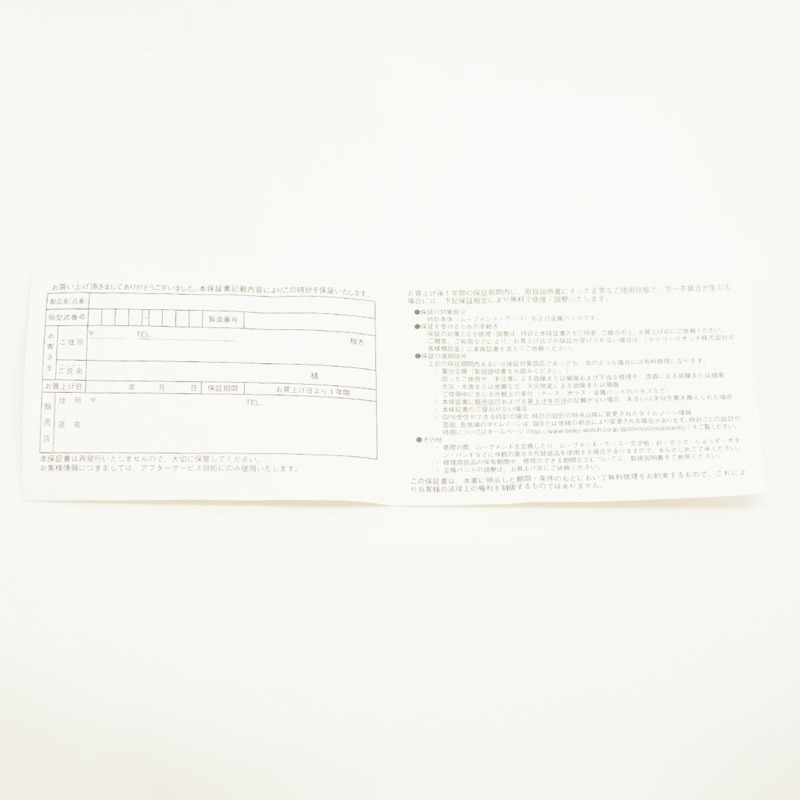 お買い上げ頂きましてありがとうございました。本保証書記載内容によりこの時計を保証いたします。
製品名(品番)
側型店番号 製造番号
お客さま
ご住所 〒 TEL 様方
ご氏名 様
お買上げ日 年 月 日 保証期間 お買上げ日より1年間
販売店
住所 〒 TEL
店名
本保証書は再発行いたしませんので、大切に保管してください。
お客様情報につきましては、アフターサービス目的にのみ使用いたします。
お買上げ後1年間の保証期間内に、取扱説明書にそった正常なご使用状態で、万一不具合が生じた
場合には、下記保証規定により無料で修理・調整いたします。
●保証の対象部分
時計本体(ムーブメント・ケース)および金属バンドです。
●保証を受けるための手続き
保証の対象となる修理・調整は、時計と本保証書ともご持参、ご提示の上、お買上げ店にご依頼ください。
ご贈答、ご転居などにより、お買上げ店での保証が受けられない場合は、「セイコーウオッチ株式会社お
客様相談室」に本保証書を添えてご依頼ください。
●保証の適用除外
上記の保証期間内あるいは保証対象部品であっても、次のような場合には有料修理になります。
・電池交換(取扱説明書をお読みください。)
・誤ったご使用や、不注意による故障または損傷および不当な修理や、改造による故障または損傷
・火災・水害または地震など、天災地変による故障または損傷
・ご使用中に生じる外観上の変化(ケース・ガラス・金属バンドの小キズなど)
・本保証書に販売店印およびお買上げ年月日の記載がない場合、あるいは字句を書き換えられた場合
・本保証書のご提示がない場合
・GPS受信ができる時計の場合、時計の設計の時点以降に変更されたタイムゾーン情報
●その他
・修理の際、ムーブメントを交換したり、ムーブメント・ケース・文字板・針・ガラス・りゅうず・ボタ
ン・バンドなどに外観の異なる代替部品を使用する場合がありますので、あらかじめご了承ください。
・修理用部品の保有期間や、修理のできる期間などについては、取扱説明書をご参照ください。
・金属バンドの調整は、お買上げ店にご依頼ください。
この保証書は、本書に明示した期間・条件のもとにおいて無料修理をお約束するもので、これによ
りお客様の法律上の権利を制限するものではありません。